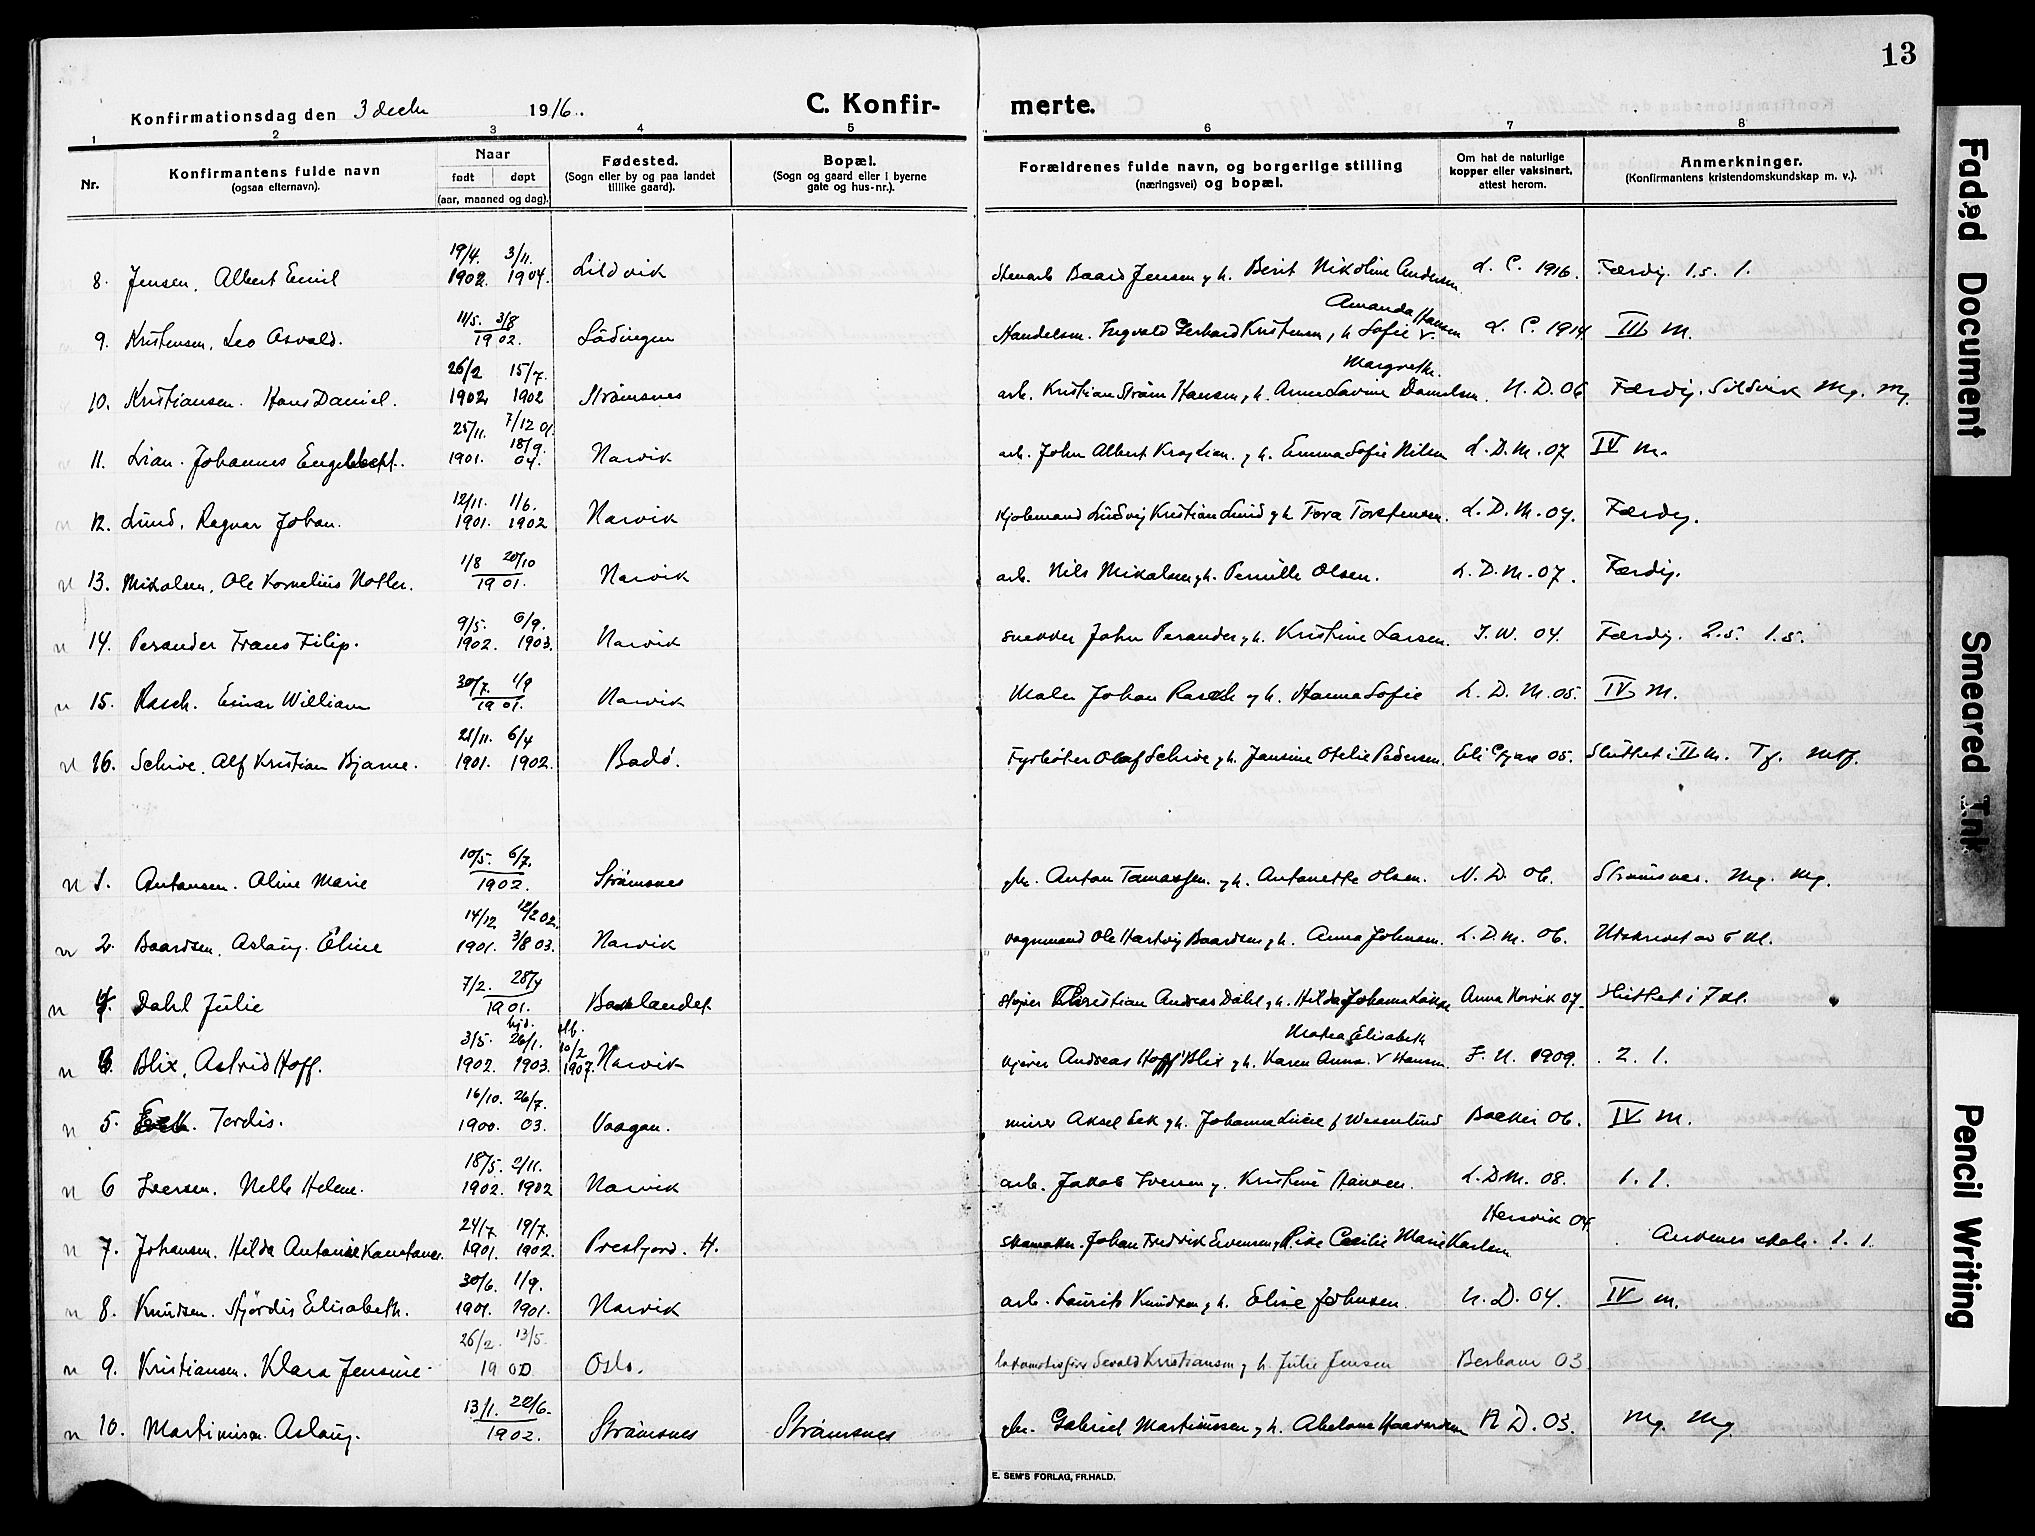 13
Konfirmationsdag den 3 decbr 1916. C. Konfir- merte.
1 2 3 4 5 6 7 8
Nr. Konfirmantens fulde navn (ogsaa efternavn). Naar født døpt (aar, maaned og dag). Fødested. (Sogn eller by og paa landet tillike gaard). Bopæl. (Sogn og gaard eller i byerne gate og hus-nr.). Forældrenes fulde navn, og borgerlige stilling (næringsvei) og bopæl. Om hat de naturlige kopper eller vaksinert, attest herom. Anmerkninger. (Konfirmantens kristendomskundskap m. v.).
8. Jensen, Albert Emil 19/4. 1902. 3/11. 1904. Sildvik Stenarb Baard Jensen g h. Berit Nikoline Andersen L. C. 1916. Færdig. 1.5. 1.
9. Kristensen, Leo Asvald. 11/5. 3/8 1902. Lødingen Handelsm. Ingvald Gerhard Kristensen, h Sofie Amanda Hansen L. C. 1914. III M.
10. Kristiansen. Hans Daniel. 26/2 1902 15/7. 1902 Strømsnes arb. Kristian Strøm Hansen g h. Anne Lovine Margrethe Danielsen. N. D. 06 Færdig. Sildvik Mg. Mg.
11. Lian. Johannes Engelbert. 25/11. 1901. 7/12 01. 18/9. 04. Narvik arb. John Albert Krag Lian. g h. Emma Sofie Nilsen L. D. M. 07 IV M.
12. Lund, Ragnar Johan. 12/11. 1901. 1/6. 1902 Narvik Kjøbmand Ludvig Kristian Lund g h Tora Torstensen. L. D. M. 07. Færdig.
n 13. Mikalsen, Ole Kornelius Hotler. 1/8 20/10 1901. Narvik arb. Nils Mikalsen g h. Pernille Olsen. L. D. M. 07. Færdig.
n 14. Perander Frans Filip. 9/5. 1902. 6/9. 1903. Narvik snekker John Perander g h. Kristine Larsen. J. W. 04. Færdig. 2.5. 1.5.
n 15. Rasch. Einar William 30/7. 1/9 1901. Narvik Maler Johan Rasch g h. Hanna Sofie L. D. M. 05. IV M.
n 16. Schive, Alf Kristian Bjarne. 21/11. 1901. 6/4 1902. Bodø. Fyrbøter Olaf Schive g h. Jensine Otelie Pedersen. 05. Sluttet i II M. Tf. Mtf.
n 1. Antonsen. Oline Marie 10/5. 6/7. 1902. Strømsnes gbr. Anton Tomassen. g h. Antonette Olsen. N. D. 06. Strømsnes. Mg. Mg.
n 2. Baardsen, Aslaug. Eline 14/12 1901. 12/2 02. 3/8 03. Narvik vognmand Ole Hartvig Baardsen g h. Anna Johnsen. L. D. M. 06. Utskrevet av 5 kl.
n 4. Dahl Julie 7/2. 28/4 1901. Baklandet Kristian Andreas Dahl g h. Hilda Johanna Anna Norvik 07. Sluttet i 7 kl.
n 3. Blix, Astrid Hoff. 3/5. 1902. hjd. 26/1. 1903. stf. 10/2 1907. Narvik Kjører Andreas Hoff Blix g h. Karen Anna Matea Elisabeth Hansen. F. N. 1909. 2. 1.
n 5. Eek. Tordis. 16/10. 1900. 26/7. 03. Vaagan. minør Aksel Eek g h. Johanna Lucie f Wesenlund Backer 06. IV M.
n 6 Iversen. Nelle Helene. 18/5. 1902. 2/11. 1902 Narvik arb. Jakob Iversen g. Kristine Hansen. L. D. M. 08. 1. 1.
n 7. Johansen. Hilda Antonie Konstanse. 24/7 1901. 19/7. 1902. Presfjord. H. skomaker. Johan Fredrik Evensen g h. Risa Cecilie Marie Karlsen Hersvik 04. Andenes skole. 1. 1.
n 8. Knudsen. Hjørdis Elisabeth. 30/6. 1901. 1/9. 1901. Narvik arb. Laurits Knudsen g h. Elise Johnsen. N. D. 04. IV M.
n 9. Kristiansen. Klara Jensine 26/2. 13/5. 1900 Oslo. lokomotivfører Sevald Kristiansen g h. Julie Jensen 03
n 10. Martinusen. Aslaug. 13/1. 22/6. 1902. Strømsnes Strømsnes gbr. Gabriel Martinussen g h. Abelone Haavardsen N D. 03. Mg. Mg
E. SEM'S FORLAG, FR.HALD.
Faded Document
Smeared Ink
Pencil Writing